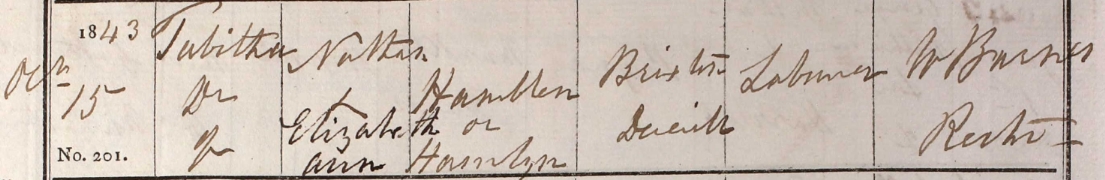 1843
Octr 15
No. 201.
Tabitha
Dr
of
Nathan
&
Elizabeth
ann
Hamblen
or
Hamlyn
Brixton
Deverill
Labourer
W Barnes
Rector